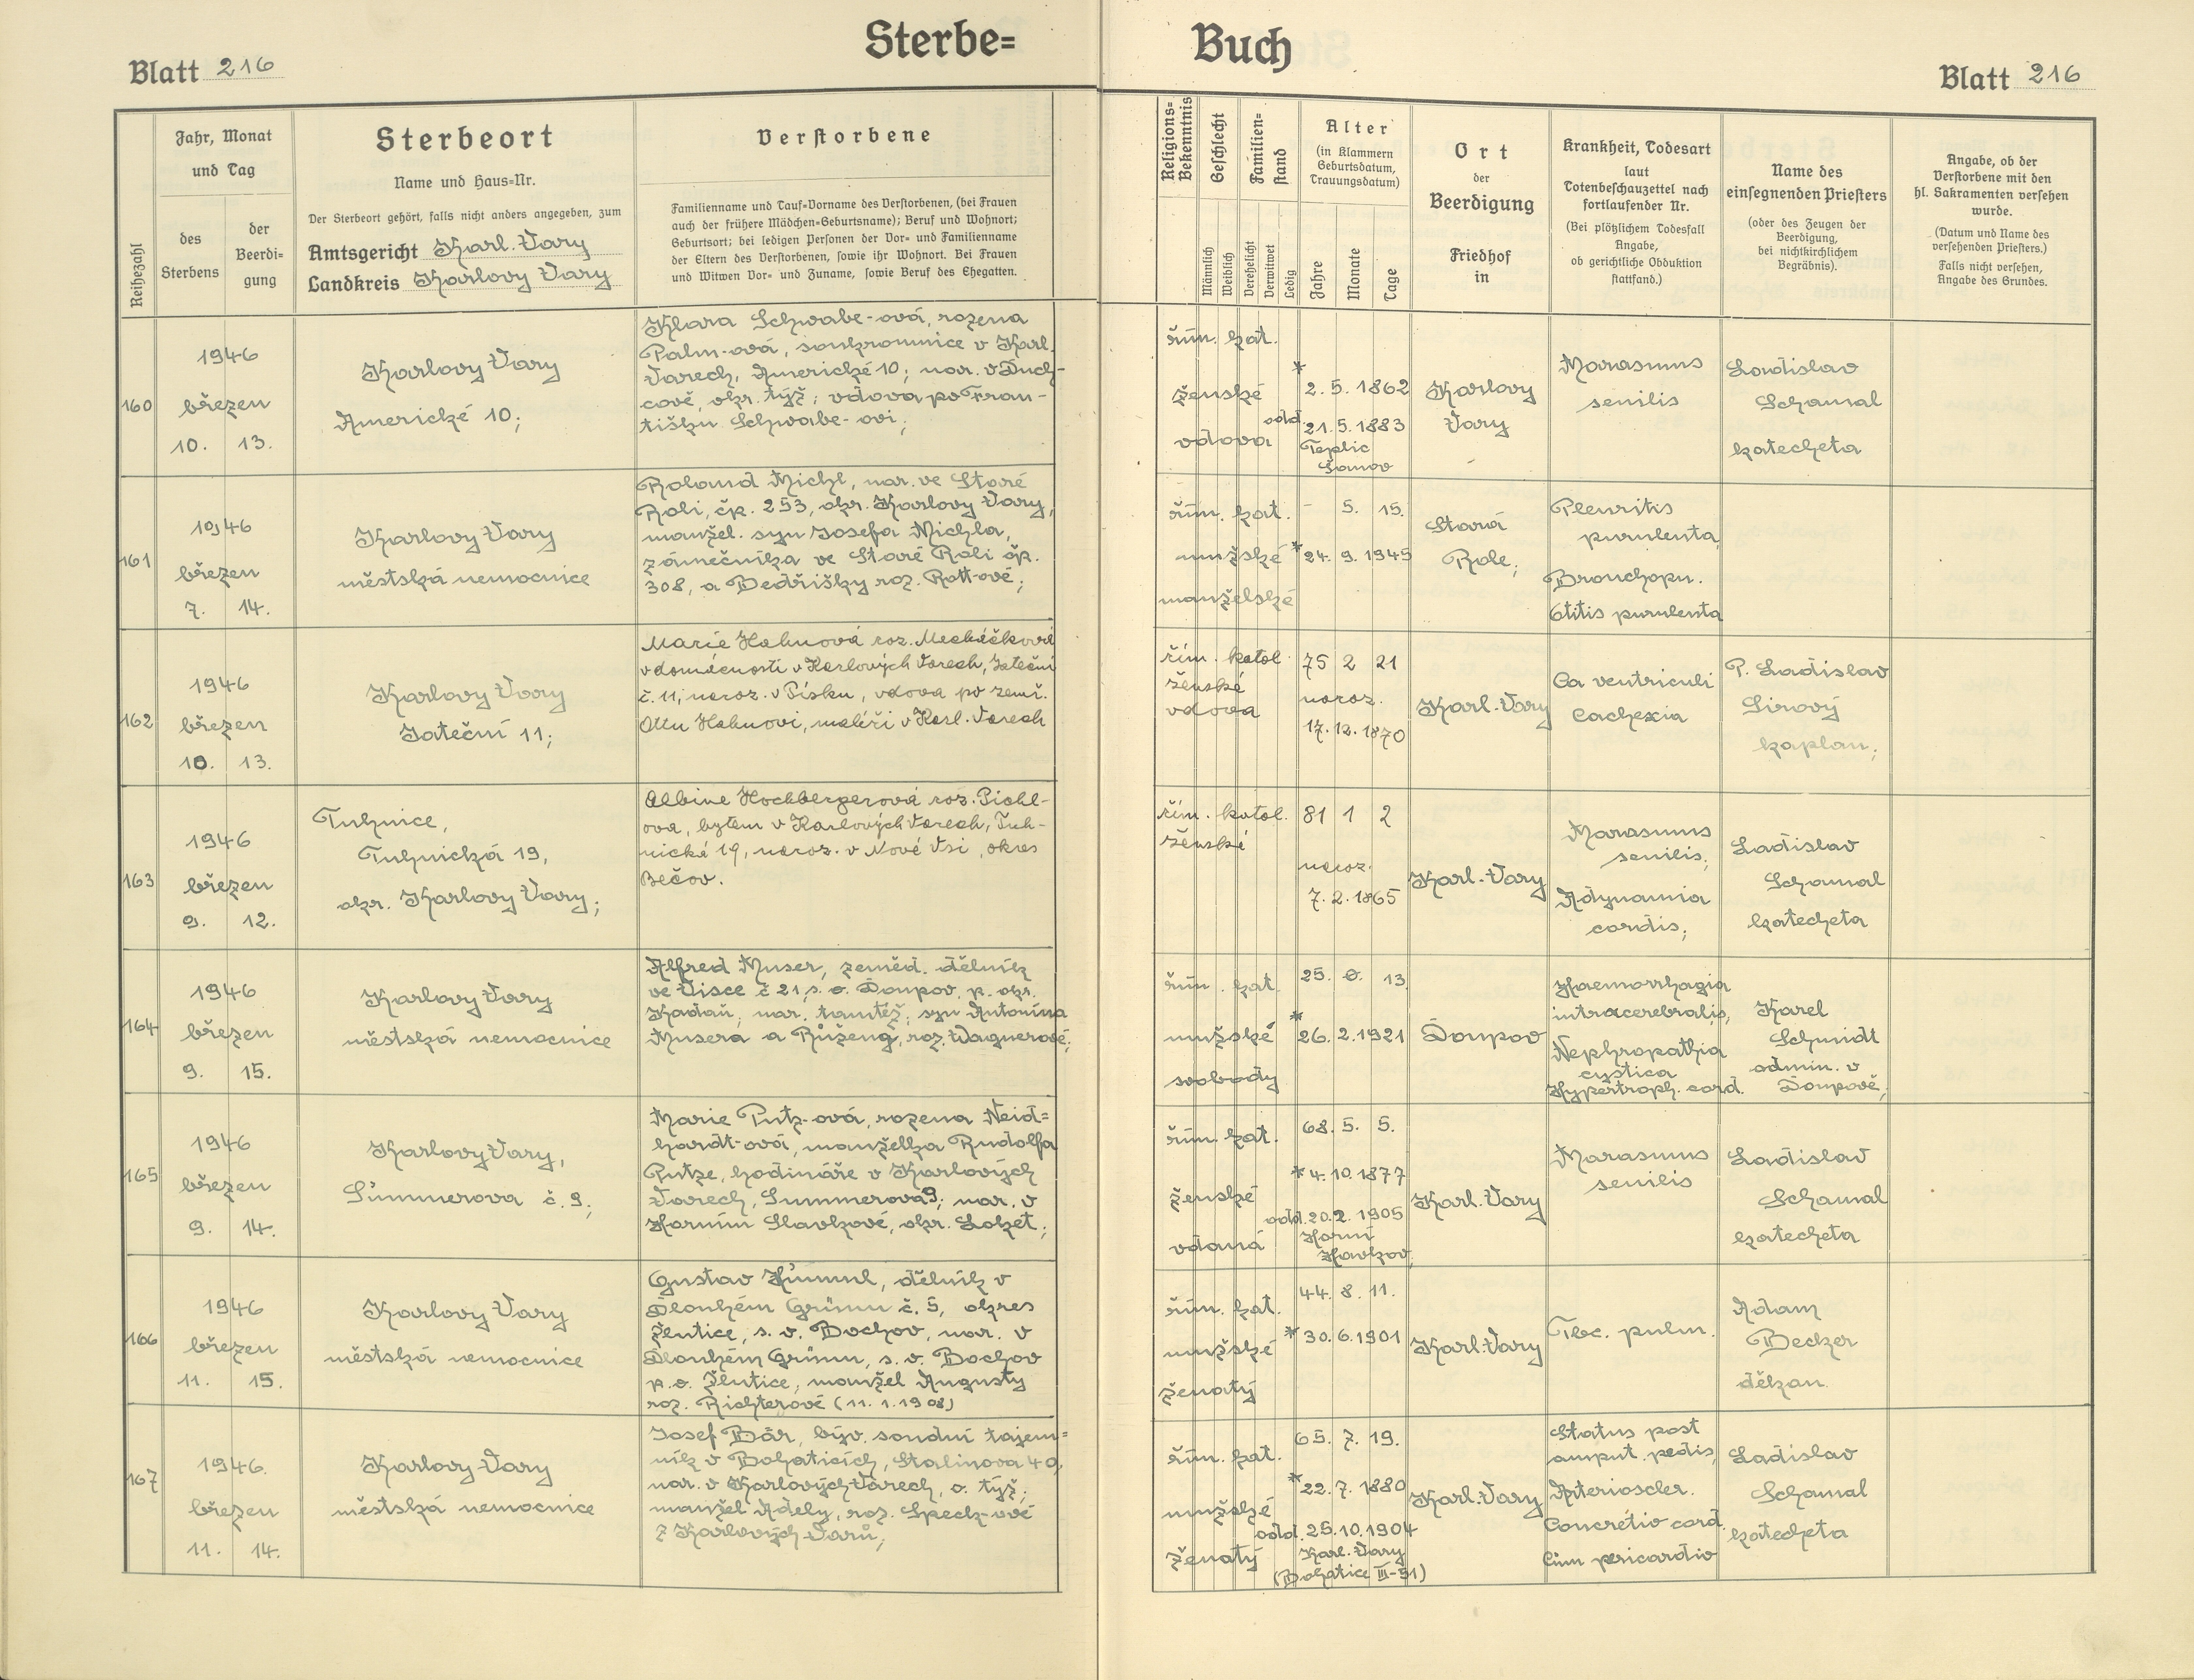 Sterbe=
Buch
Blatt 216
Blatt 216
Reihezahl
Jahr, Monat
und Tag
des
Sterbens
der
Beerdi-
gung
Sterbeort
Name und Haus=Nr.
Der Sterbeort gehört, falls nicht anders angegeben, zum
Amtsgericht Karl. Vary
Landkreis Karlovy Vary
Verstorbene
Familienname und Tauf=Vorname des Verstorbenen, (bei Frauen
auch der frühere Mädchen=Geburtsname); Beruf und Wohnort;
Geburtsort; bei ledigen Personen der Vor= und Familienname
der Eltern des Verstorbenen, sowie ihr Wohnort. Bei Frauen
und Witwen Vor= und Zuname, sowie Beruf des Ehegatten.
Religions=
Bekenntnis
Geschlecht
Männlich
Weiblich
Familien=
stand
Verehelicht
Verwitwet
Ledig
Alter
(in Klammern
Geburtsdatum,
Trauungsdatum)
Jahre
Monate
Tage
Ort
der
Beerdigung
Friedhof
in
Krankheit, Todesart
laut
Totenbeschauzettel nach
fortlaufender Nr.
(Bei plötzlichem Todesfall
Angabe,
ob gerichtliche Obduktion
stattfand.)
Name des
einsegnenden Priesters
(oder des Zeugen der
Beerdigung,
bei nichtkirchlichem
Begräbnis).
Angabe, ob der
Verstorbene mit den
hl. Sakramenten versehen
wurde.
(Datum und Name des
versehenden Priesters.)
Falls nicht versehen,
Angabe des Grundes.
160
1946
březen
10. 13.
Karlovy Vary
Americké 10;
Klara Schwabe-ová, rozena
Palm-ová, soukromnice v Karl.
Varech, Americké 10; nar. v Duch-
cově, okr. týž; vdova po Fran-
tišku Schwabe-ovi;
řím. kat.
ženské
vdova
* 2. 5. 1862
odd. 21. 5. 1883
Teplic
Šanov
Karlovy
Vary
Marasmus
senilis
Ladislav
Schamal
katecheta
161
1946
březen
7. 14.
Karlovy Vary
městská nemocnice
Roland Michl, nar. ve Staré
Roli, čp. 253, okr. Karlovy Vary,
manžel. syn Josefa Michla,
zámečníka ve Staré Roli čp.
308, a Bedřišky roz. Rott-ové;
řím. kat.
mužské
manželské
- 5. 15.
* 24. 9. 1945
Stará
Role;
Pleuritis
purulenta,
Bronchopn.
Otitis purulenta
162
1946
březen
10. 13.
Karlovy Vary
Jateční 11;
Marie Hahnová roz. Mecháčková
v domácnosti v Karlových Varech, Jateční
č. 11; naroz. v Písku, vdova po zemř.
Ottu Hahnovi, malíři v Karl. Varech
řím. katol.
ženské
vdova
75 2 21
naroz.
17. 12. 1870
Karl. Vary
Ca ventriculi
Cachexia
P. Ladislav
Sirový
kaplan;
163
1946
březen
9. 12.
Tuhnice,
Tuhnická 19,
okr. Karlovy Vary;
Albine Hochbergerová roz. Piohl-
ova, bytem v Karlových Varech, Tuh-
nická 19, naroz. v Nové Vsi, okres
Bečov.
řím. katol.
ženské
81 1 2
naroz.
7. 2. 1865
Karl. Vary
Marasmus
senilis;
Adynamia
cordis;
Ladislav
Schamal
katecheta
164
1946
březen
9. 15.
Karlovy Vary
městská nemocnice
Alfred Muser, zeměd. dělník
ve Lisce č 21, s. o. Doupov, p. okr.
Kadaň; nar. tamtéž; syn Antonína
Musera a Růženy, roz. Wagnerové;
řím. kat.
mužské
svobody
25. 0. 13
* 26. 2. 1921
Doupov
Haemorrhagia
intracerebralis,
Nephropathia
cystica
Hypertroph. cord.
Karel
Schmidt
admin. v
Doupově;
165
1946
březen
9. 14.
Karlovy Vary,
Summerova č. 9;
Marie Putz-ová, rozena Neid=
hardt-ová, manželka Rudolfa
Putze, hodináře v Karlových
Varech, Summerova 9; nar. v
Horním Slavkově, okr. Loket;
řím. kat.
ženské
vdaná
68. 5. 5.
* 4. 10. 1877
odd. 20. 2. 1905
Horní
Slavkov
Karl. Vary
Marasmus
senilis
Ladislav
Schamal
katecheta
166
1946
březen
11. 15.
Karlovy Vary
městská nemocnice
Gustav Hümml, dělník v
Dlouhém Grünu č. 5, okres
Žlutice, s. o. Bochov, nar. v
Dlouhém Grünu, s. o. Bochov
p. o. Žlutice, manžel Augusty
roz. Richterové (11. 1. 1908)
řím. kat.
mužské
ženatý
44. 8. 11.
* 30. 6. 1901
Karl. Vary
Tbc. pulm.
Adam
Becker
děkan
167
1946.
březen
11. 14.
Karlovy Vary
městská nemocnice
Josef Bär, býv. soudní tajem=
ník v Bohaticích, Stalinova 40,
nar. v Karlových Varech, o. týž;
manžel Adely, roz. Speck-ové
z Karlových Varů;
řím. kat.
mužské
ženatý
65. 7. 19.
* 22. 7. 1880
odd. 25. 10. 1904
Karl. Vary
(Bohatice III-51)
Karl. Vary
Status post
amput. pedis,
Arterioscler.
Concretio cord.
cum pericardio
Ladislav
Schamal
katecheta